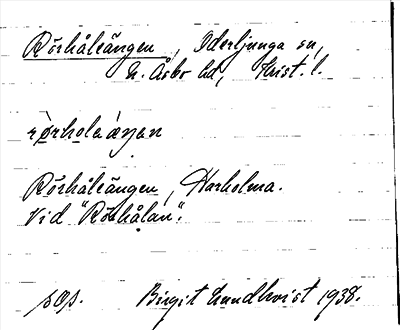 Rörhålsängen, Oderljunga sn,
N. Åsbo hd, Krist. l.
Rörhålsängen, Harholma.
Vid "Rörhålan".
sOs. Birgit Lundkvist 1938.